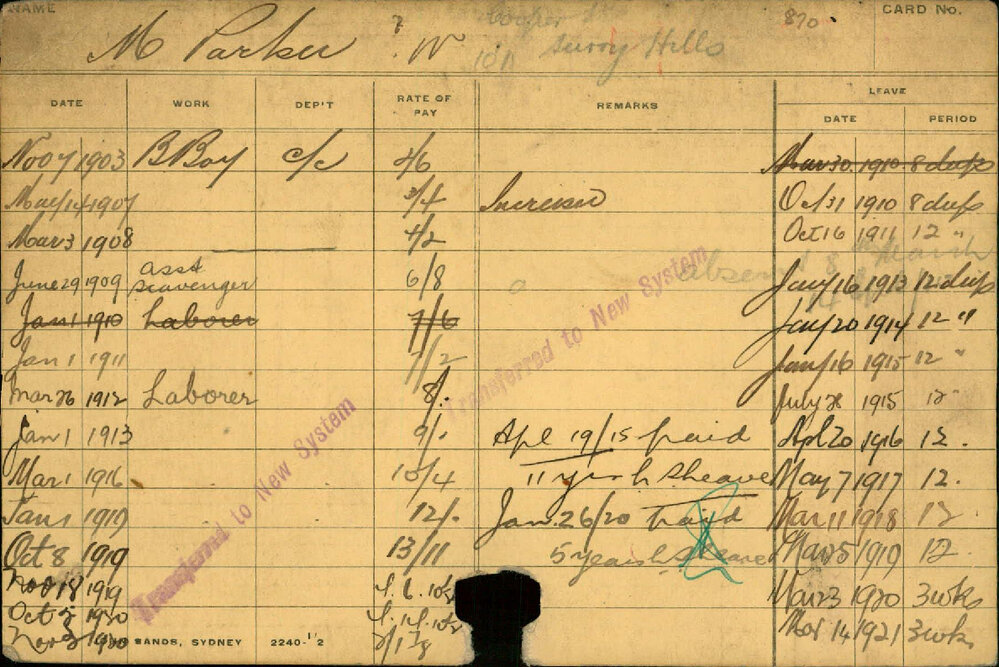 NAME CARD No.
M Parker ? W Cooper St 870
101 Surry Hills
DATE WORK DEP'T RATE OF PAY REMARKS LEAVE
DATE PERIOD
Nov 7 1903 B Boy c/c 2/6 Mar 30 1910 8 days
May 14 1907 3/4 Increase Oct 31 1910 8 days
Mar 3 1908 4/2 Oct 16 1911 12 "
June 29 1909 Asst Scavenger 6/8 absent 8 March Jany 16 1913 12 days
Jan 1 1910 Laborer 7/6 Jany 20 1914 12 "
Jan 1 1911 7/2 Jany 16 1915 12 "
Mar 26 1912 Laborer 8/. July 28 1915 12 "
Jan 1 1913 9/. Apl 19/15 paid Apl 20 1916 12.
Mar 1 1916 10/4 11 yrs h s leave May 7 1917 12.
Jan 1 1919 12/. Jan. 26/20 paid Mar 11 1918 12.
Oct 8 1919 13/11 5 years h s leave Mar 5 1919 12.
Nov 18 1919 Mar 23 1920 3 wks
Oct 1920 Mar 14 1921 3 wk
Nov
Transferred to New System
Transferred to New System
SANDS, SYDNEY 2240-1'2